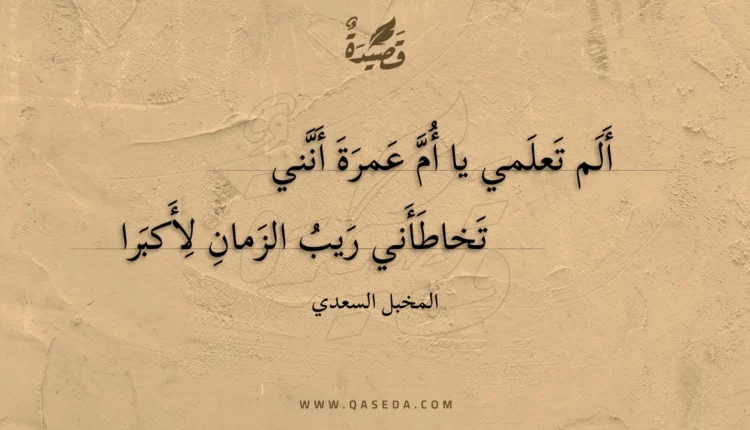 قَصِيدَةٌ
أَلَم تَعلَمي يا أُمَّ عَمرَةَ أَنَّني
تَخاطَأَني رَيبُ الزَمانِ لِأَكبَرا
المخبل السعدي
WWW.QASEDA.COM